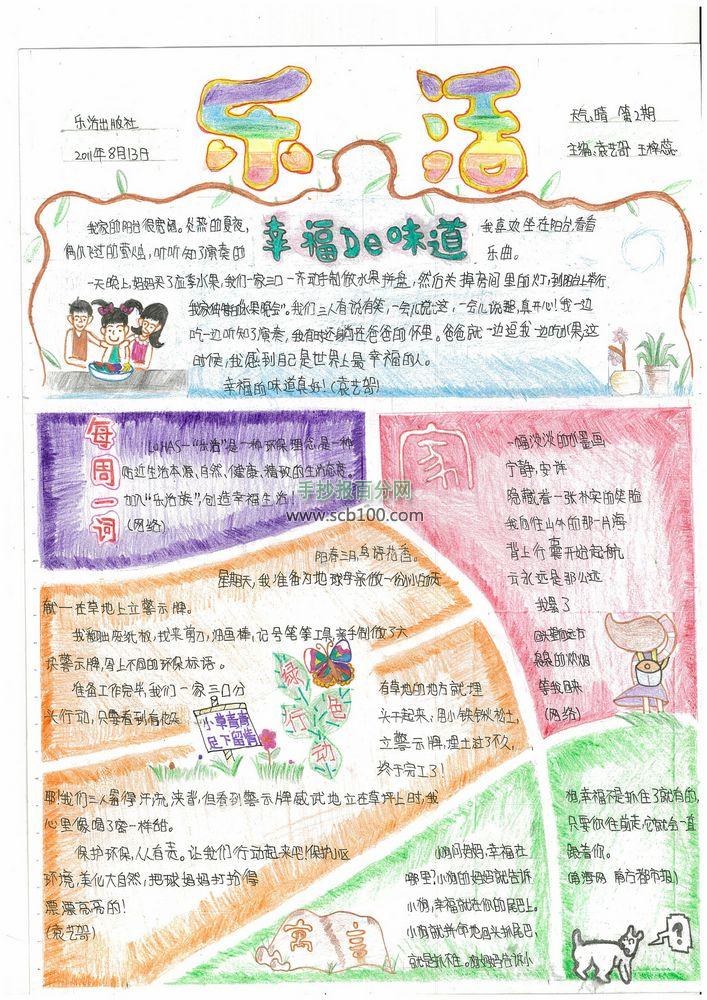 乐活
乐活出版社
2011年8月13日
天气:晴 第2期
主编:袁艺
幸福De味道
我家的阳台很宽阔。炎热的夏夜, 我喜欢坐在阳台看看
偶尔飞过的萤火虫,听听知了演奏的 乐曲。
一天晚上,妈妈买了应季水果,我们一家三口一齐动手制做水果拼盘,然后关掉房间里的灯,到阳台上举行
我家独特的“水果晚会”。我们三人有说有笑,一会儿说这,一会儿说那,真开心!我一边
吃一边听知了演奏,我有时还躺在爸爸的怀里。爸爸就一边逗我一边吃水果,这
时候,我感到自己是世界上最幸福的人。
幸福的味道真好!(袁艺)
每周一词
LOHAS一“乐活”是一种环保理念,是一种
贴近生活本源,自然、健康、精致的生活态度。
加入“乐活族”,创造幸福生活!
(网络)
手抄报百分网
www.scb100.com
家
一幅淡淡的水墨画
宁静,安详
隐藏着一张朴实的笑脸
我向往山外的那一片海
背上行囊开始起航
云永远是那么远
我累了
回头望的远方
袅袅的炊烟
等我回来
(网络)
阳春三月,鸟语花香。
星期天,我准备为地球母亲做一份小小的贡
献——在草地上立警示牌。
我翻出废纸板,找来剪刀、油画棒、记号笔等工具,亲手制做了六
块警示牌,写上不同的环保标语。
准备工作完毕,我们一家三口分
头行动,只要看到有花
绿色行动
小草青青
足下留情
有草地的地方就埋
头干起来,用小铁锹松土,
立警示牌,埋土过了不久,
终于完工了!
耶!我们三人累得汗流浃背,但看到警示牌威武地立在草坪上时,我
心里像喝了蜜一样甜。
保护环保,人人有责。让我们行动起来吧!保护
环境,美化大自然,把地球妈妈打扮得
漂漂亮亮的!
(袁艺)
寓言
小狗问妈妈,幸福在
哪里,小狗的妈妈就告诉
小狗,幸福就在你的尾巴上。
小狗就拼命地回头抓尾巴,
就是抓不住。狗妈妈告诉小
狗,幸福不是抓住了就有的,
只要你往前走,它就会一直
跟着你。
(南海网 南方都市报)
?